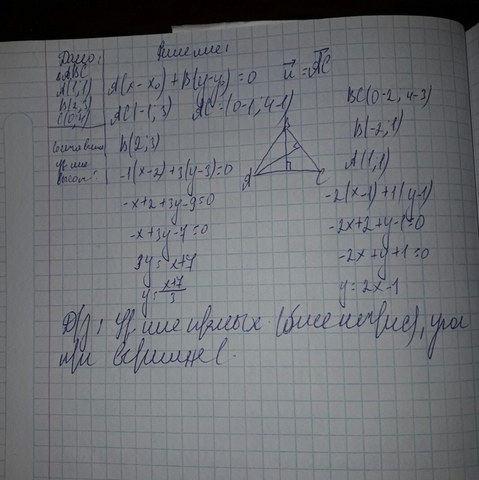 Дано: Решение:
△ABC
A(1;1)
B(2;3)
C(0;4)
Составить
ур-ние
высот.
A(x-x₀)+B(y-y₀)=0
n̄ = A̅C̅
AC(-1;3) AC=(0-1;4-1)
B(2;3)
-1(x-2)+3(y-3)=0
-x+2+3y-9=0
-x+3y-7=0
3y=x+7
y=x+7/3
B
A C
BC(0-2;4-3)
B(-2;1)
A(1;1)
-2(x-1)+1(y-1)
-2x+2+y-1=0
-2x+y+1=0
y=2x-1
Д/з: Ур-ние прямых (биссектрис), угол
при вершине C.